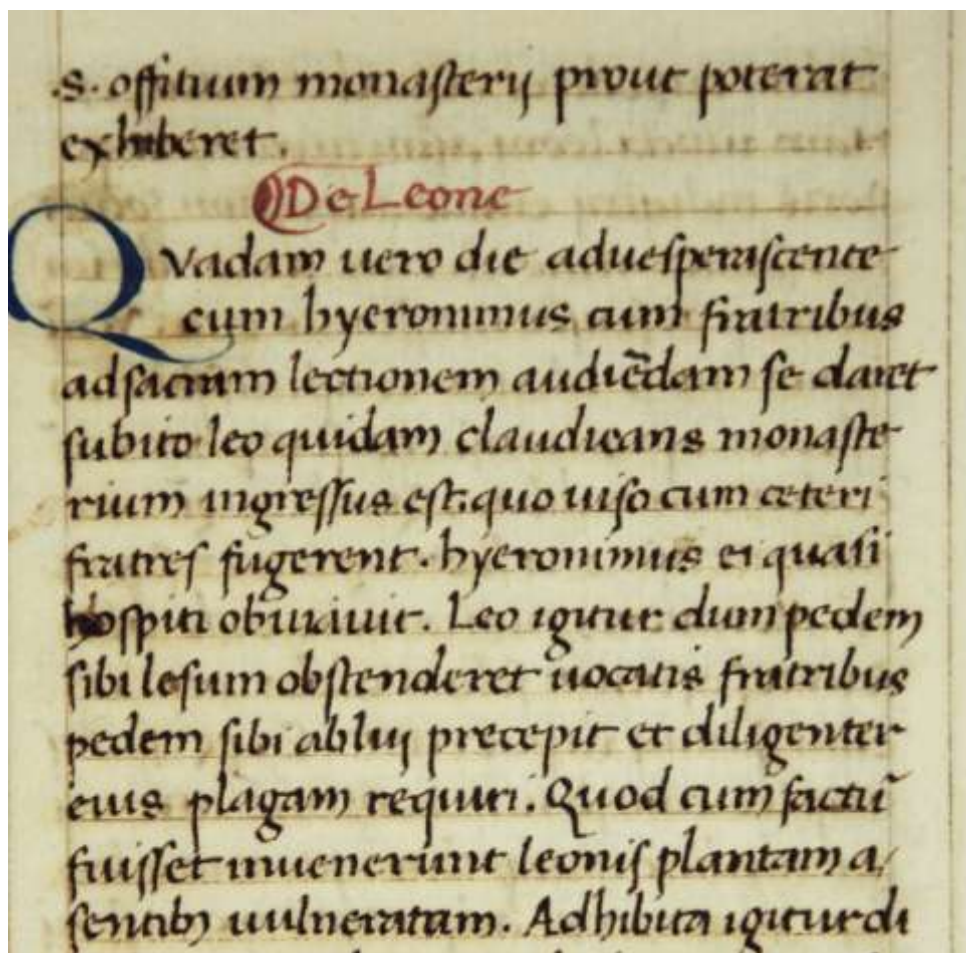 .s. offitium monasterij prout poterat
exhiberet.
De Leone
QVadam uero die aduesperascente
cum hyeronimus cum fratribus
ad sacram lectionem audiẽdam se daret
subito leo quidam claudicans monaste-
rium ingressus est: quo uiso cum ceteri
fratres fugerent. hyeronimus ei quasi
hospiti obuiauit. Leo igitur dum pedem
sibi lesum obstenderet uocatis fratribus
pedem sibi abluij precepit et diligenter
eius plagam requiri. Quod cum factũ
fuisset inuenerunt leonis plantam a/
sentibꝫ uulneratam. Adhibita igitur di